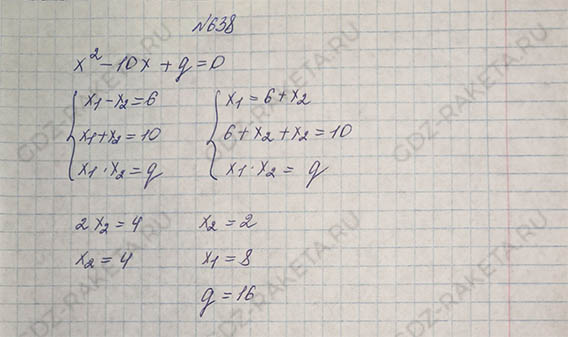 №638
x² - 10x + q = 0
x₁ - x₂ = 6
x₁ + x₂ = 10
x₁ · x₂ = q
x₁ = 6 + x₂
6 + x₂ + x₂ = 10
x₁ · x₂ = q
2x₂ = 4
x₂ = 4
x₂ = 2
x₁ = 8
q = 16
GDZ-RAKETA.RU
GDZ-RAKETA.RU
GDZ-RAKETA.RU
GDZ-RAKETA.RU
GDZ-RAKETA.RU
GDZ-RAKETA.RU